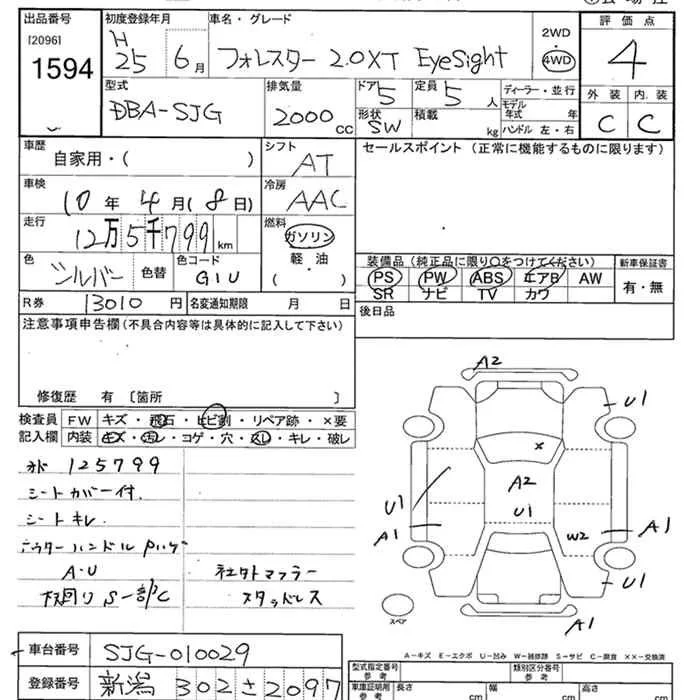 出品番号 初度登録年月 車名・グレード 評価点
[2096] H 2WD
1594 25 6月 フォレスター 2.0XT EyeSight 4WD 4
型式 排気量 ドア 定員 ディーラー・並行 外装 内装
DBA-SJG 2000cc 5 5人 モデル年式 年 C C
形状 積載
SW kg ハンドル 左・右
車歴 シフト セールスポイント (正常に機能するものに限ります)
自家用・( ) AT
車検 冷房
10年4月(8日) AAC
走行 燃料
12万5千799km ガソリン
色 色コード 軽・油 装備品 (純正品に限り○をつけてください) 新車保証書
シルバー 色替 G1U ( ) PS PW ABS エアB AW 有・無
SR ナビ TV カワ
R券 13010円 名変通知期限 月 日 後日品
注意事項申告欄 (不具合内容等は具体的に記入して下さい)
修復歴 有 〔箇所 〕
検査員 FW キズ・飛石・ヒビ割・リペア跡・×要
記入欄 内装 キズ・汚レ・コゲ・穴・スレ・キレ・破レ
125799
シートカバー付
シートキレ
アウターハンドル
A・U 社外マフラー
下回りS一部C スタッドレス
A2
U1
×
A2
U1 U1
A1 W2 A1
U1
スペア A1
A-キズ E-エクボ U-凹み W-補修跡 S-サビ C-腐食 ××-交換済
車台番号 SJG-010029
登録番号 新潟 302 さ 2097
型式指定番号 参考 類別区分番号 参考
車庫証明用 参考 長さ cm 幅 cm 高さ cm